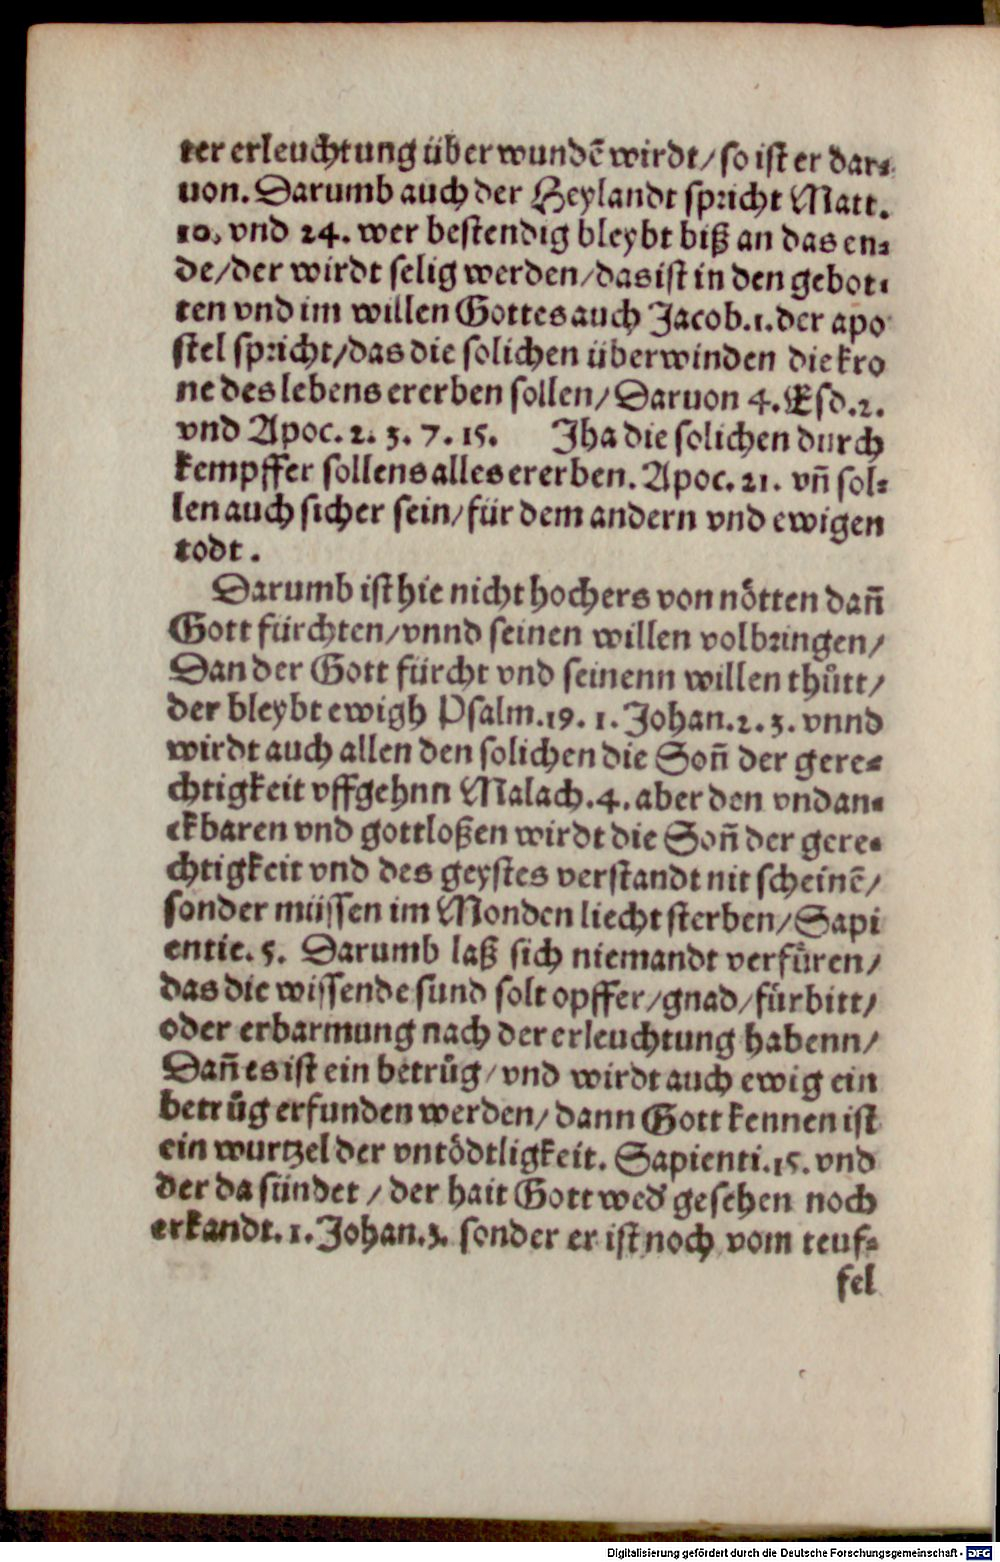 ter erleuchtung überwundē wirdt/ so ist er dar⸗
uon. Darumb auch der Heylandt spricht Matt.
10, vnd 24. wer bestendig bleybt biß an das en⸗
de/der wirdt selig werden/das ist in den gebot⸗
ten vnd im willen Gottes auch Jacob.1.der apo
stel spricht/das die solichen überwinden die kro
ne des lebens ererben sollen/ Daruon 4. Esd.2.
vnd Apoc. 2. 3. 7. 15. Jha die solichen durch
kempffer sollens alles ererben. Apoc. 21. vñ sol⸗
len auch sicher sein/für dem andern vnd ewigen
todt.
Darumb ist hie nicht hochers von nötten dañ
Gott fürchten/vnnd seinen willen volbringen/
Dan der Gott fürcht vnd seinenn willen thůtt/
der bleybt ewigh Psalm.19. 1. Johan.2.3. vnnd
wirdt auch allen den solichen die Soñ der gere⸗
chtigkeit vffgehnn Malach.4. aber den vndan⸗
ckbaren vnd gottloßen wirdt die Soñ der gere⸗
chtigkeit vnd des geystes verstandt nit scheinē/
sonder müssen im Monden liecht sterben/Sapi
entie. 5. Darumb laß sich niemandt verfüren/
das die wissende sund solt opffer/gnad/fürbitt/
oder erbarmung nach der erleuchtung habenn/
Dañ es ist ein betrůg/vnd wirdt auch ewig ein
betrůg erfunden werden/dann Gott kennen ist
ein wurtzel der vntödtligkeit. Sapienti.15. vnd
der da sündet / der hait Gott wed' gesehen noch
erkandt. 1. Johan.3. sonder er ist noch vom teuf⸗
fel
Digitalisierung gefördert durch die Deutsche Forschungsgemeinschaft - DFG